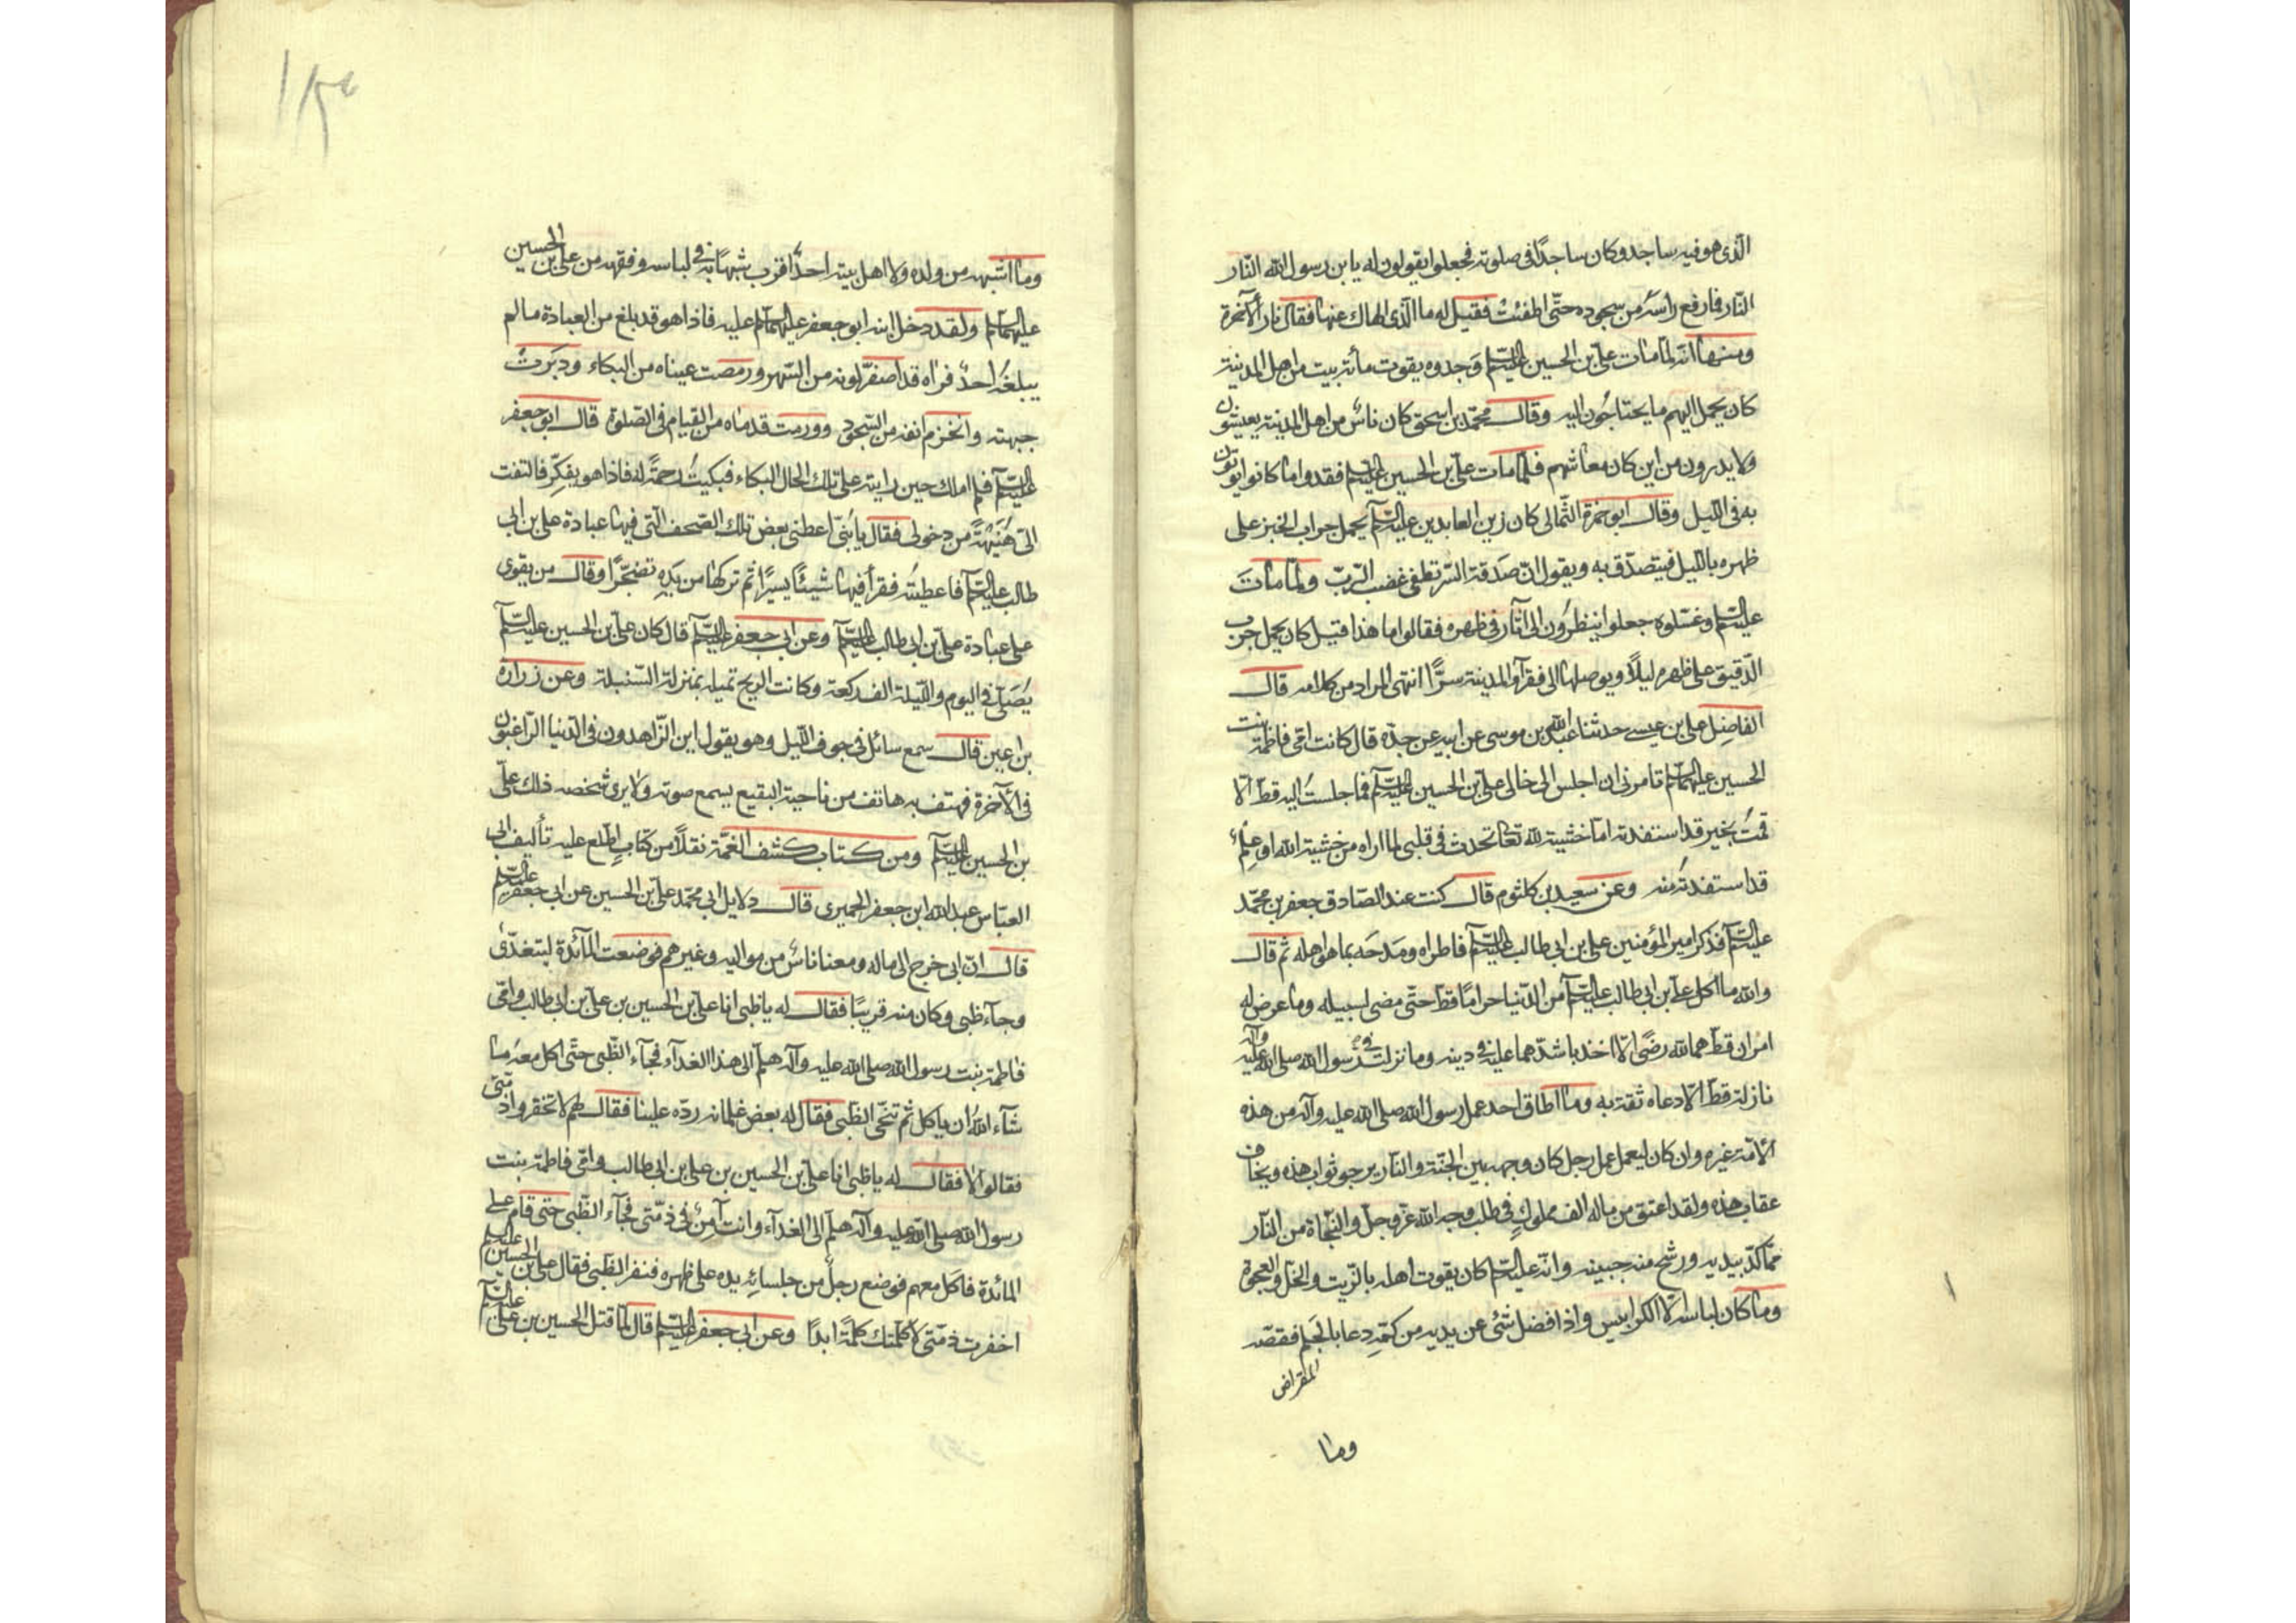 الّذى هو فيه ساجد وكان ساجدًا فى صلوته فجعلوا يقولون له يا بن رسول الله النّار
النّار فما رفع راسه من سجوده حتّى اطفئت فقيل له ما الّذى الهاك عنها فقال نار الآخرة
ومنها انّه لمّا مات علىّ بن الحسين عليه السّلم وجدوه يقوت مأة بيت من اهل المدينة
كان يحمل اليهم ما يحتاجون اليه وقال محمّد بن اسحق كان ناس من اهل المدينة يعيشون
ولا يدرون من اين كان معاشهم فلمّا مات علىّ بن الحسين عليه السّلم فقدوا ما كانوا يؤتون
به فى اللّيل وقال ابو حمزة الثّمالى كان زين العابدين عليه السّلم يحمل جراب الخبز على
ظهره باللّيل فيتصدّق به ويقول انّ صدقة السّر تطفئ غضب الرّبّ ولمّا مات
عليه السّلم وغسّلوه جعلوا ينظرون الى آثار فى ظهره فقالوا ما هذا قيل كان يحمل جرب
الدّقيق على ظهره ليلًا ويوصلها الى فقرآء المدينة سرًّا انتهى المراد من كلامه قال
الفاضل على بن عيسى حدثنا عبد الله بن موسى عن ابيه عن جدّه قال كانت امّى فاطمة بنت
الحسين عليهما السّلم تامرنى ان اجلس الى خالى علىّ بن الحسين عليه السّلم فما جلست اليه قطّ الّا
قمت بخير قد استفدته امّا خشية لله تعا تحدث فى قلبى لما اراه من خشية الله او علم
قد استفدته منه وعن سعيد بن كلثوم قال كنت عند الصّادق جعفر بن محمّد
عليه السّلم فذكر امير المؤمنين على بن ابى طالب عليه السّلم فاطراه ومدحه بما هو اهله ثم قال
والله ما اكل على بن ابى طالب عليه السّلم من الدّنيا حرامًا قطّ حتّى مضى لسبيله وما عرض له
امران قطّ هما لله رضًى الّا اخذ باشدّهما عليه فى دينه وما نزلت برسول الله صلى الله عليه وآله
نازلة قطّ الّا دعاه ثقة به وما اطاق احد عمل رسول الله صلى الله عليه وآله من هذه
الامّة غيره وان كان ليعمل عمل رجل كان وجهه بين الجنّة والنّار يرجو ثواب هذه ويخاف
عقاب هذه ولقد اعتق من ماله الف مملوك فى طلب وجه الله عزّ وجلّ والنّجاة من النّار
ممّا كدّ بيديه ورشح منه جبينه وانّه عليه السّلم كان يقوت اهله بالزّيت والخلّ والعجوة
وما كان لباسه الّا الكرابيس واذا فضل شئ عن يديه من كمّه دعا بالجلم فقصّه
المقراض
وما
وما اشبهه من ولده ولا اهل بيته احدٌ اقرب شبهًا به فى لباسه وفقهه من على بن الحسين
عليهما السّلم ولقد دخل ابنه ابو جعفر عليهما السّلم عليه فاذا هو قد بلغ من العبادة ما لم
يبلغه احدٌ فراه قد اصفرّ لونه من السّهر ورمصت عيناه من البكاء ودبرت
جبهته وانخرم انفه من السّجود وورمت قدماه من القيام فى الصّلوة قال ابو جعفر
عليه السّلم فلم املك حين رايته على تلك الحال البكاء فبكيت رحمةً له فاذا هو يفكّر فالتفت
الىّ هنيهة من دخولى فقال يا بنىّ اعطنى بعض تلك الصّحف الّتى فيها عبادة على بن ابى
طالب عليه السّلم فاعطيته فقرأ فيها شيئًا يسيرًا ثم تركها من يده تضجّرًا وقال من يقوى
على عبادة علىّ بن ابى طالب عليه السّلم وعن ابى جعفر عليه السّلم قال كان علىّ بن الحسين عليه السّلم
يصلّى فى اليوم واللّيلة الف ركعة وكانت الرّيح تميله بمنزلة السّنبلة وعن زرارة
بن اعين قال سمع سائل فى جوف اللّيل وهو يقول اين الزّاهدون فى الدّنيا الرّاغبون
فى الآخرة فهتف به هاتف من ناحية البقيع يسمع صوته ولا يرى شخصه ذلك علىّ
بن الحسين عليه السّلم ومن كتاب كشف الغمّة نقلًا من كتاب اطّلع عليه تأليف ابى
العبّاس عبد الله ابن جعفر الحميرى قال دلايل ابى محمّد علىّ بن الحسين عن ابى جعفر عليه السّلم
قال انّ ابى خرج الى ماله ومعنا ناسٌ من مواليه وغيرهم فوضعت المائدة لنتغدّى
وجآء ظبى وكان منه قريبًا فقال له يا ظبى انا علىّ بن الحسين بن علىّ بن ابى طالب وامّى
فاطمة بنت رسول الله صلى الله عليه وآله هلمّ الى هذا الغدآء فجآء الظّبى حتّى اكل معه ما
شآء الله ان ياكل ثم تنحّى الظّبى فقال له بعض غلمانه ردّه علينا فقال لهم لا تخفروا ذمّتى
فقالوا لا فقال له يا ظبى انا علىّ بن الحسين بن على بن ابى طالب وامّى فاطمة بنت
رسول الله صلى الله عليه وآله هلمّ الى الغدآء وانت آمن فى ذمّتى فجآء الظّبى حتى قام على
المائدة فاكل معهم فوضع رجلٌ من جلسائه يده على ظهره فنفر الظّبى فقال على بن الحسين عليه السّلم
اخفرت ذمّتى لا كلّمتك كلمةً ابدًا وعن ابى جعفر عليه السّلم قال لمّا قتل الحسين بن علىّ عليه السّلم